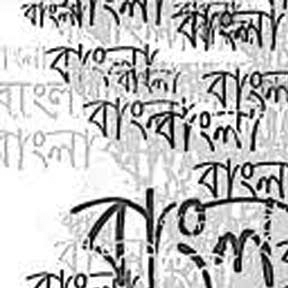 বাংলা বাংলা বাংলা
বাংলা বাংলা
বাংলা বাংলা
বাংলা বাংলা বাংলা
বাংলা
বাংলা
বাংলা
বাংলা